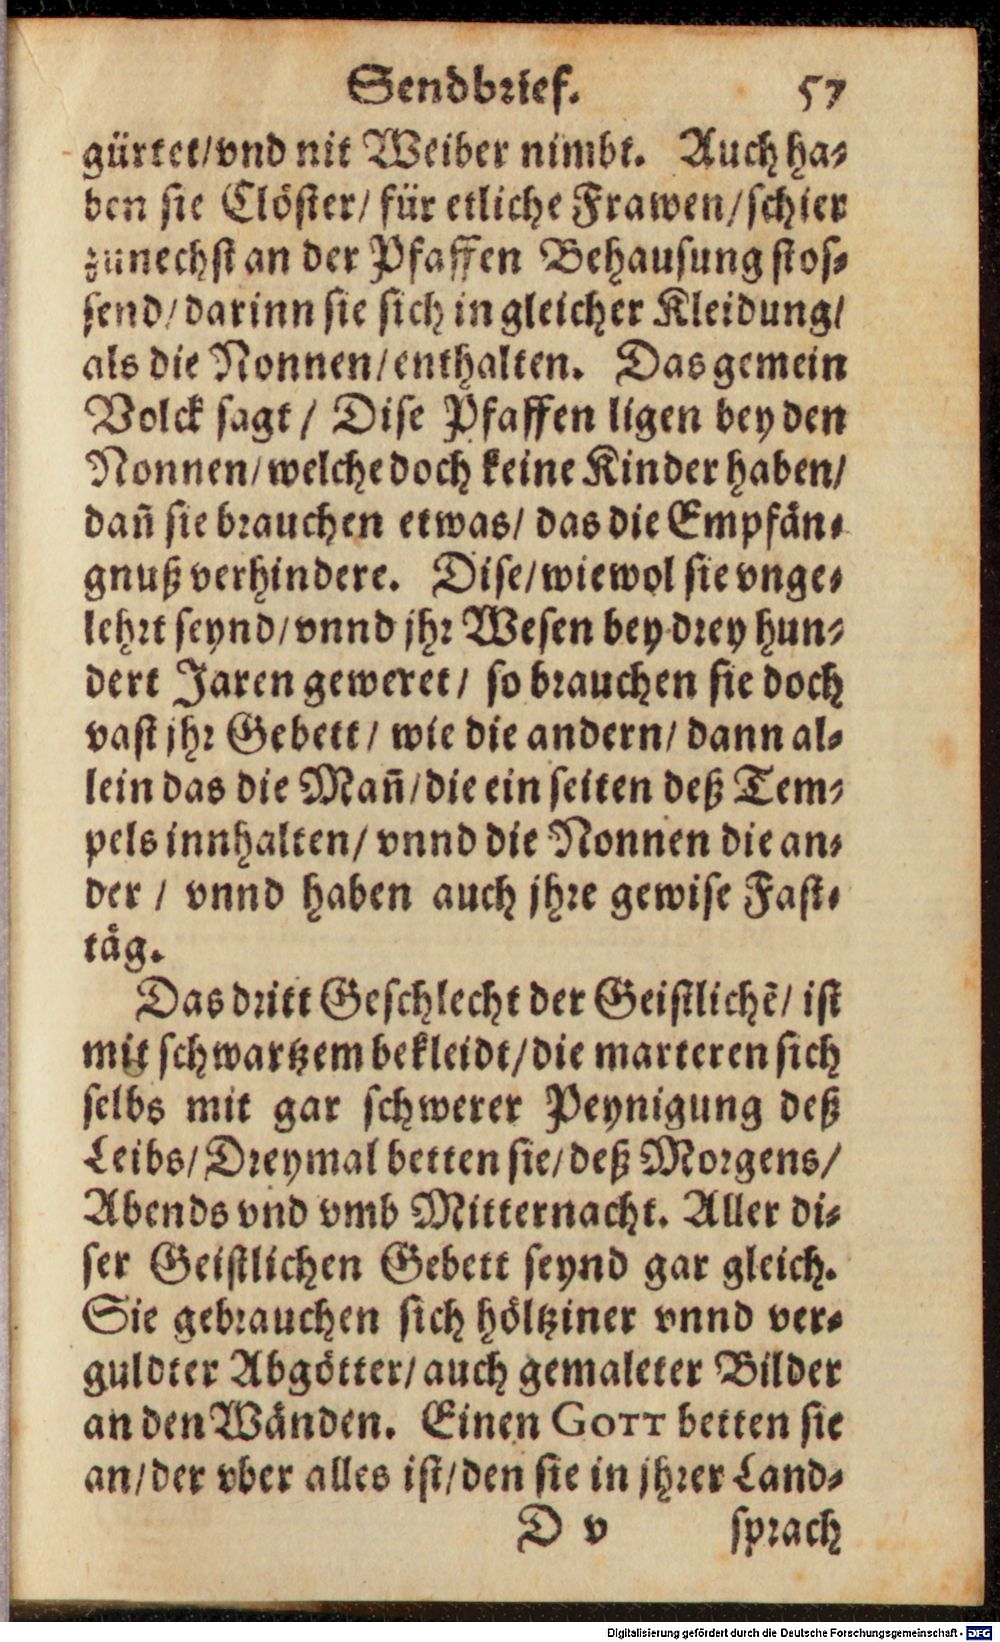 Sendbrief. 57
gürtet/vnd nit Weiber nimbt. Auch ha-
ben sie Clöster/ für etliche Frawen/schier
zunechst an der Pfaffen Behausung stos-
send/darinn sie sich in gleicher Kleidung/
als die Nonnen/enthalten. Das gemein
Volck sagt/ Dise Pfaffen ligen bey den
Nonnen/welche doch keine Kinder haben/
dañ sie brauchen etwas/ das die Empfän-
gnuß verhindere. Dise/wiewol sie vnge-
lehrt seynd/vnnd jhr Wesen bey drey hun-
dert Jaren geweret/ so brauchen sie doch
vast jhr Gebett/ wie die andern/ dann al-
lein das die Mañ/die ein seiten deß Tem-
pels innhalten/ vnnd die Nonnen die an-
der/ vnnd haben auch jhre gewise Fast-
täg.
Das dritt Geschlecht der Geistlichẽ/ ist
mit schwartzem bekleidt/die marteren sich
selbs mit gar schwerer Peynigung deß
Leibs/Dreymal betten sie/deß Morgens/
Abends vnd vmb Mitternacht. Aller di-
ser Geistlichen Gebett seynd gar gleich.
Sie gebrauchen sich höltziner vnnd ver-
guldter Abgötter/auch gemaleter Bilder
an den Wänden. Einen GOTT betten sie
an/der vber alles ist/den sie in jhrer Land-
D v sprach
Digitalisierung gefördert durch die Deutsche Forschungsgemeinschaft - DFG